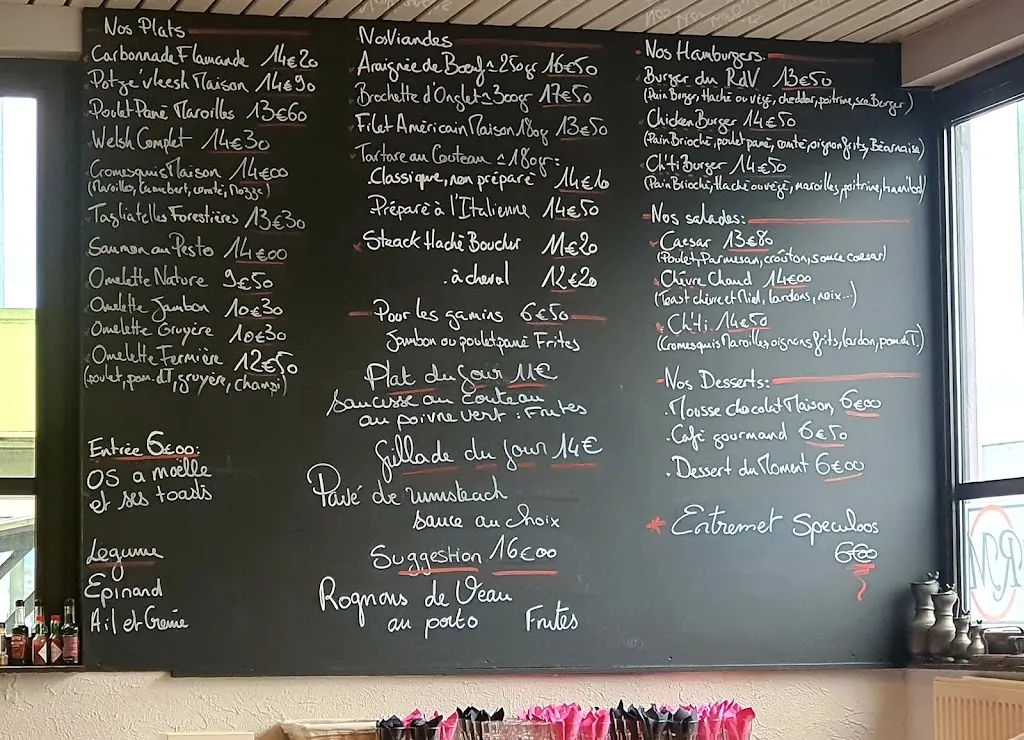 Nos Plats
Carbonnade Flamande 14€20
Potje'vleesh Maison 14€90
Poulet Pané Maroilles 13€60
Welsh Complet 14€30
Cromesquis Maison 14€00
(Maroilles, Camembert, comté, Mozza)
Tagliatelles Forestières 13€30
Saumon au Pesto 14€00
Omelette Nature 9€50
Omelette Jambon 10€30
Omelette Gruyère 10€30
Omelette Fermière 12€50
(poulet, pom.d.T, gruyère, champi)
Entrée 6€00:
OS a moëlle
et ses toasts
Legume
Epinard
Ail et Crème
Nos Viandes
Araignée de Bœuf ± 250gr 16€50
Brochette d'Onglet ± 300gr 17€50
Filet Américain Maison 180g 13€50
Tartare au Couteau ± 180gr:
Classique, non préparé 14€10
Préparé à l'Italienne 14€50
Steack Haché Boucher 11€20
.à cheval 12€20
Pour les gamins 6€50
Jambon ou poulet pané Frites
Plat du Jour 11€
Saucisse au Couteau
au poivre vert : Frites
Grillade du Jour 14€
Pavé de rumsteack
sauce au choix
Suggestion 16€00
Rognons de Veau
au porto Frites
Nos Hamburgers.
Burger du RdV 13€50
(Pain Burger, Haché ou végé, cheddar, poitrine, sce Burger)
Chicken Burger 14€50
(Pain Brioché, poulet pané, comté, oignon frits, Béarnaise)
Ch'ti Burger 14€50
(Pain Brioché, Haché ou végé, maroilles, poitrine, hannibal)
Nos salades:
Caesar 13€80
(Poulet, Parmesan, croûton, sauce caesar)
Chèvre Chaud 14€00
(Toast chèvre et Miel, lardons, noix...)
Ch'ti 14€50
(Cromesquis Maroilles, oignons frits, lardon, pom.d.T.)
Nos Desserts:
.Mousse chocolat Maison 6€00
.Café gourmand 6€50
.Dessert du Moment 6€00
* Entremet Speculoos
6€00